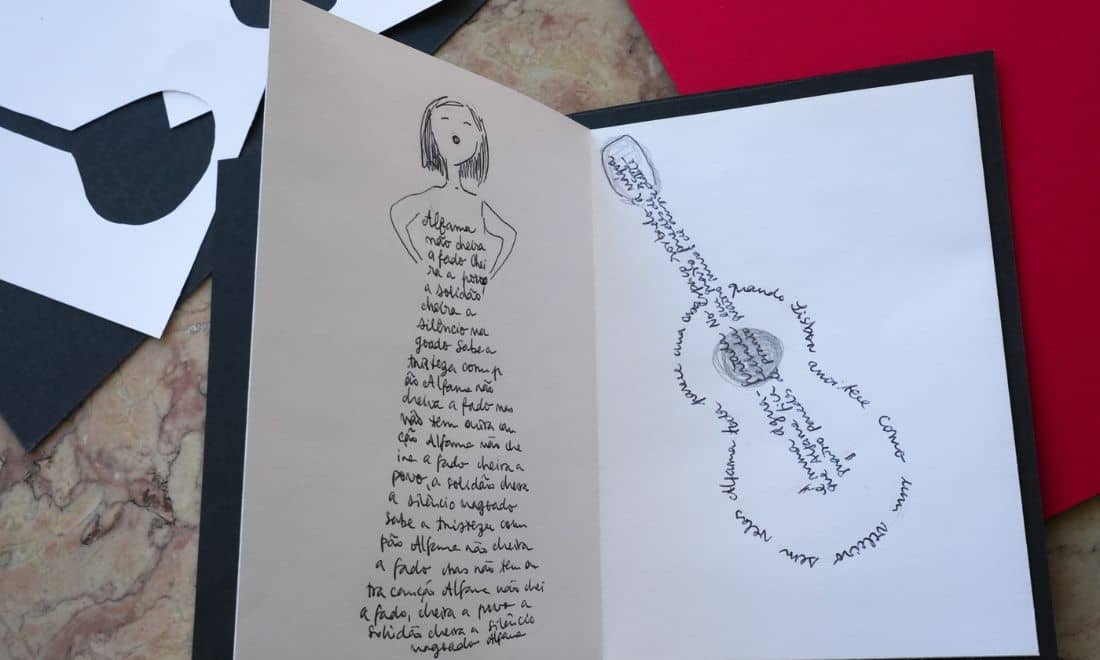 Alfama
não cheira
a fado chei
ra a povo
a solidão
cheira a
silêncio ma
goado sabe a
tristeza com p
ão Alfama não
cheira a fado mas
não tem outra can
ção Alfama não che
ira a fado cheira a
povo, a solidão cheira
a silêncio magoado
sabe a tristeza com
pão Alfama não cheira
a fado mas não tem ou
tra canção Alfama não chei
a fado, cheira a povo a
solidão cheira a silêncio
magoado Alfama
quando Lisboa anoitece como um veleiro sem velas Alfama toda parece uma casa
É numa água-
que Alfama fica
quatro paredes